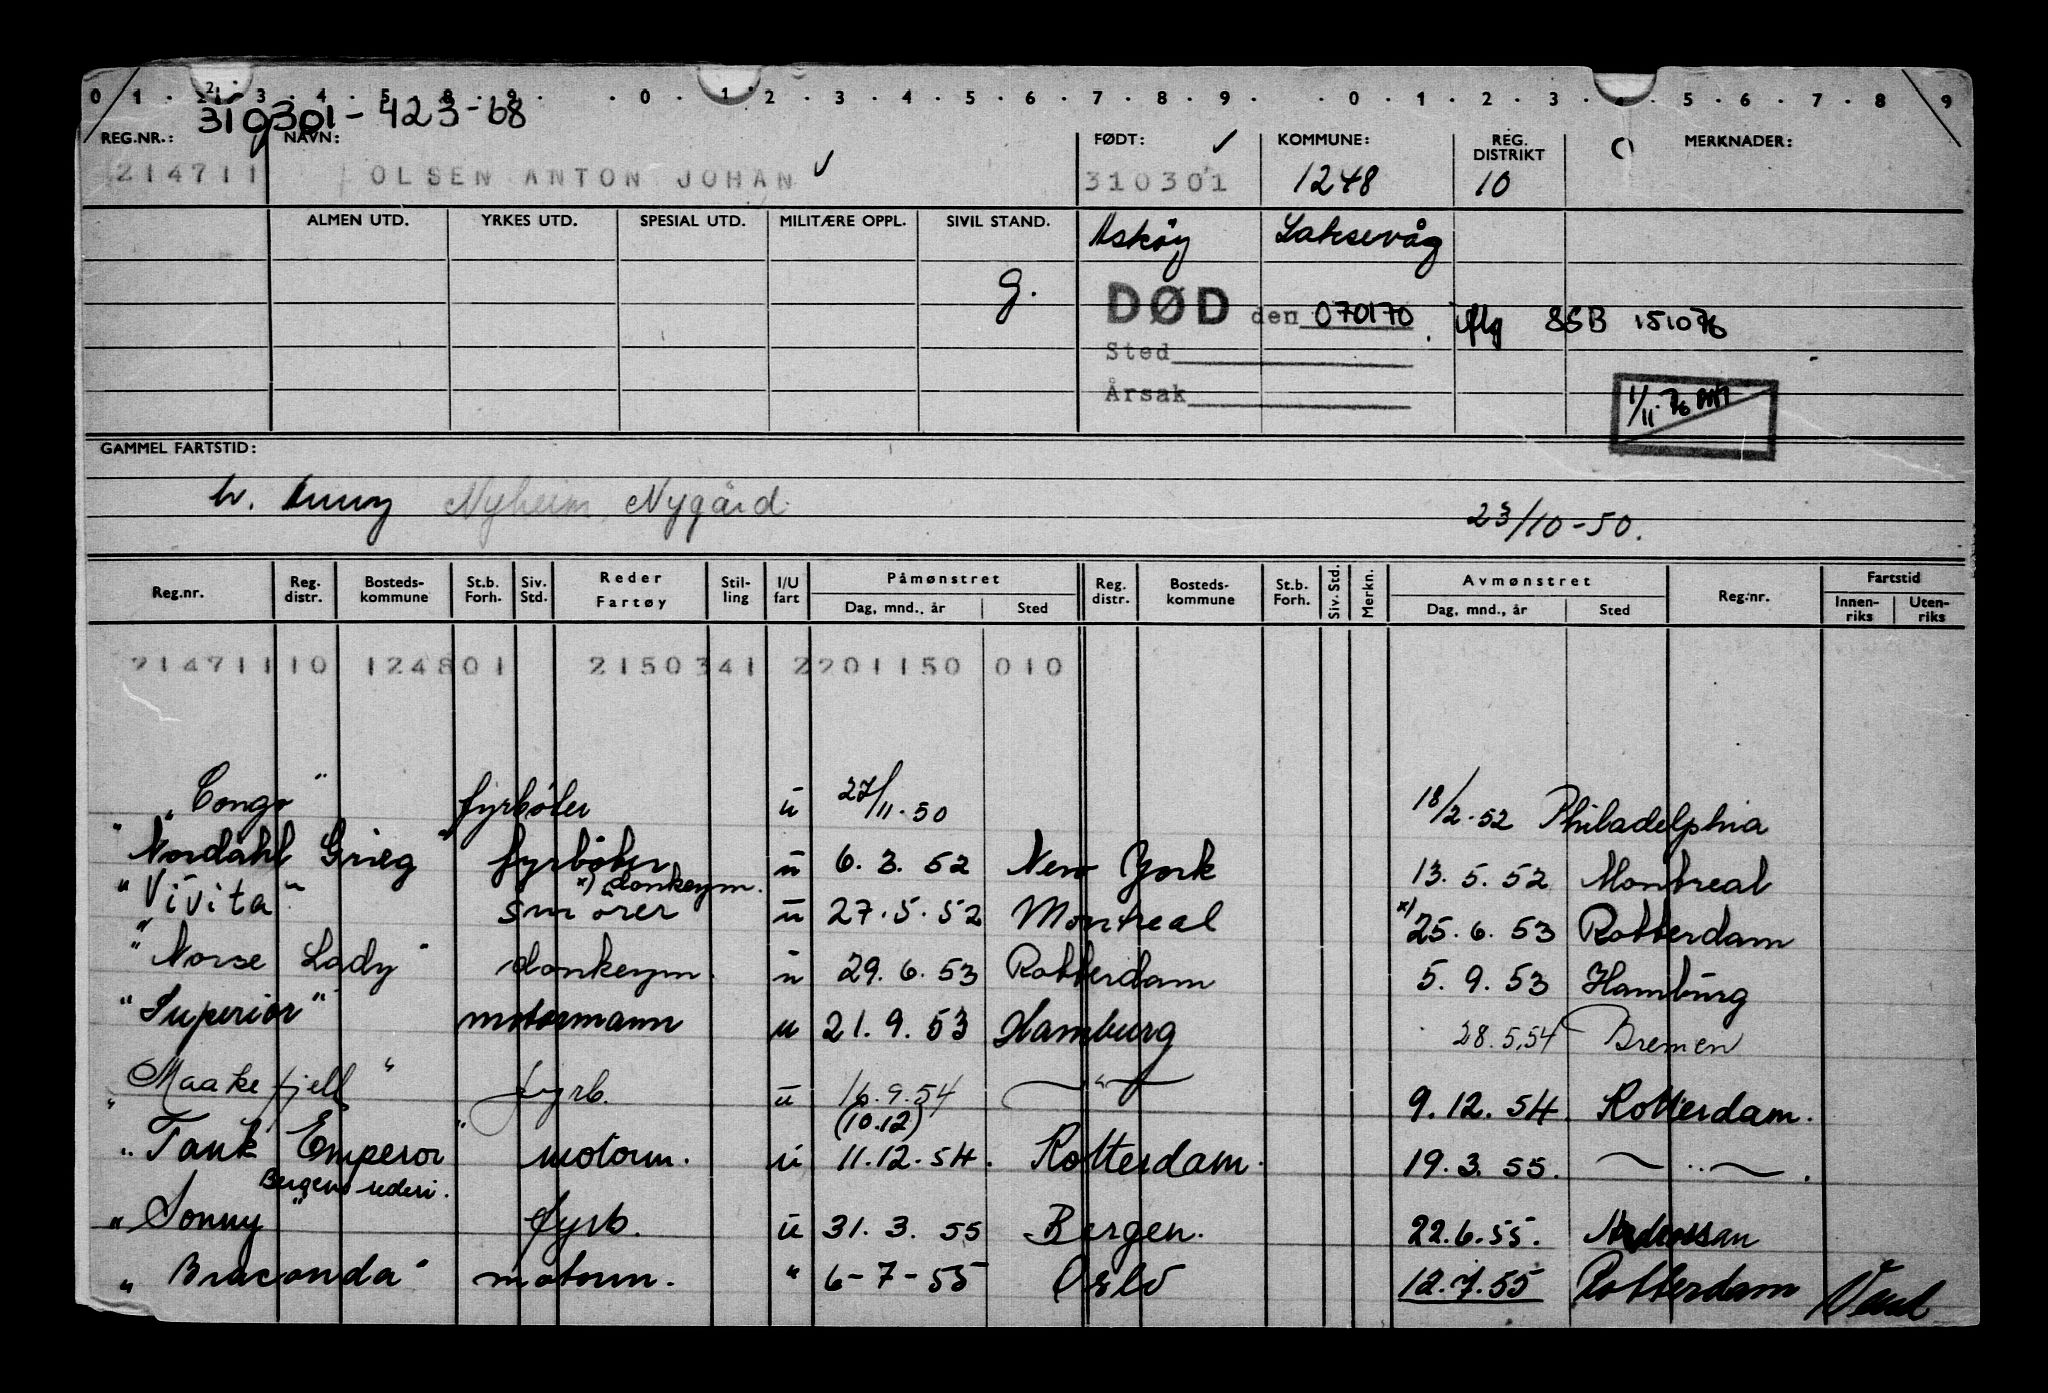 0 1 . 2 . 3 . 4 . 5 . 8 . 9 . . 0 . 1 . 2 . 3 . 4 . 5 . 6 . 7 . 8 . 9 . . 0 . 1 . 2 . 3 . 4 . 5 . 6 . 7 . 8 . 9
310301-423-68
REG.NR.: NAVN: FØDT: ✓ KOMMUNE: REG. DISTRIKT MERKNADER:
214711 OLSEN ANTON JOHAN ✓ 310301 1248 10
ALMEN UTD. YRKES UTD. SPESIAL UTD. MILITÆRE OPPL. SIVIL STAND. Askøy Laksevåg
g.
DØD den 070170. iflg SSB 151076
Sted
Årsak
1/11.76
GAMMEL FARTSTID:
h. Nyheim, Nygård.
23/10-50.
Reg.nr. Reg. distr. Bosteds-kommune St.b. Forh. Siv. Std. Reder Fartøy Stil-ling I/U fart Påmønstret Dag, mnd., år Sted Reg. distr. Bosteds-kommune St.b. Forh. Siv. Std. Merkn. Avmønstret Dag, mnd., år Sted Reg.nr. Fartstid Innen-riks Uten-riks
214711 10 124801 2150341 2201150 010
"Congo" fyrbøter u 27/11.50 18/2.52 Philadelphia
"Nordahl Grieg" fyrbøter u 6.3.52 New York 13.5.52 Montreal
x) donkeym.
"Vivita" smører u 27.5.52 Montreal x) 25.6.53 Rotterdam
"Norse Lady" donkeym. u 29.6.53 Rotterdam 5.9.53 Hamburg
"Superior" motormann u 21.9.53 Hamburg 28.5.54 Bremen
"Maakefjell" fyrb. u 16.9.54 —"— 9.12.54. Rotterdam.
(10.12)
"Tank Emperor" motorm. u 11.12.54. Rotterdam. 19.3.55. —"—.
Bergens rederi.
"Sonny" fyrb. u 31.3.55 Bergen. 22.6.55. Ardrossan
"Braconda" motorm. " 6-7-55 Oslo 12.7.55 Rotterdam Vend